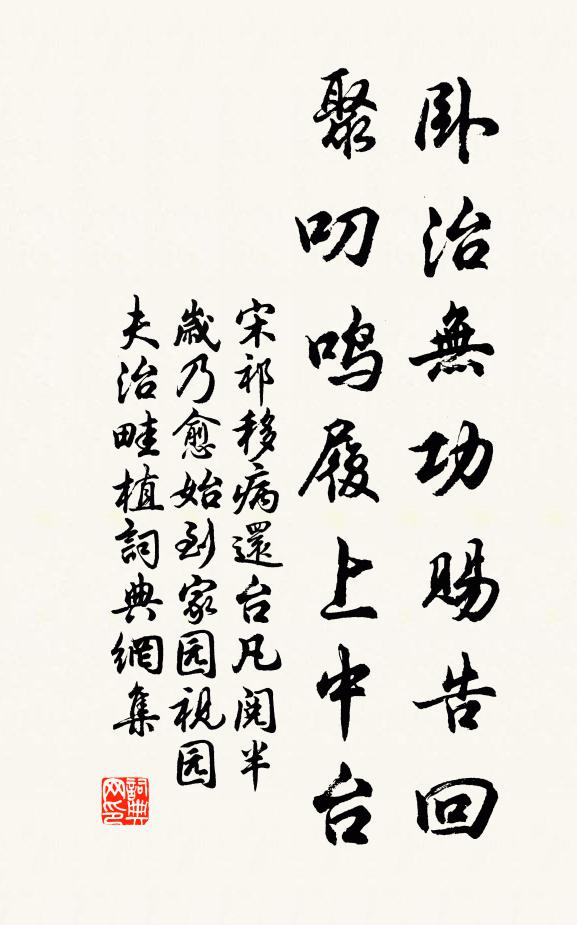 卧治無功賜告回
聚叨鳴履上中台
宋祁移病還台凡閱半
歲乃愈始到家园視园
夫治畦植詞典網集
詞典网印